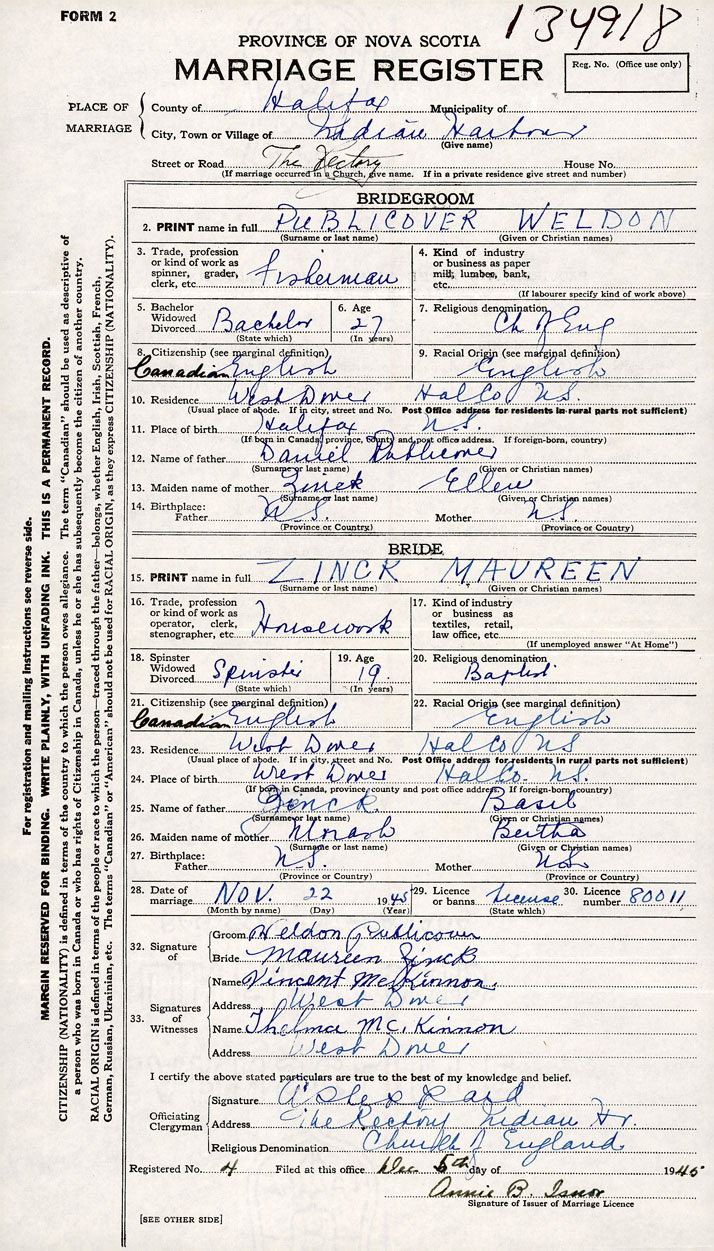 FORM 2
134918
PROVINCE OF NOVA SCOTIA
MARRIAGE REGISTER
Reg. No. (Office use only)
PLACE OF MARRIAGE
County of Halifax Municipality of
City, Town or Village of Indian Harbour
(Give name)
Street or Road The Rectory House No.
(If marriage occurred in a Church, give name. If in a private residence give street and number)
BRIDEGROOM
2. PRINT name in full PUBLICOVER WELDON
(Surname or last name) (Given or Christian names)
3. Trade, profession or kind of work as spinner, grader, clerk, etc. Fisherman
4. Kind of industry or business as paper mill, lumber, bank, etc.
(If labourer specify kind of work above)
5. Bachelor Widowed Divorced Bachelor
(State which)
6. Age 27
(In years)
7. Religious denomination
Ch of Eng
8. Citizenship (see marginal definition)
Canadian English
9. Racial Origin (see marginal definition)
English
10. Residence West Dover Hal Co N.S.
(Usual place of abode. If in city, street and No. Post Office address for residents in rural parts not sufficient)
11. Place of birth Halifax N.S.
(If born in Canada, province, county and post office address. If foreign-born, country)
12. Name of father Daniel Publicover
(Surname or last name) (Given or Christian names)
13. Maiden name of mother Zinck Ellen
(Surname or last name) (Given or Christian names)
14. Birthplace: Father N.S. Mother N.S.
(Province or Country) (Province or Country)
BRIDE
15. PRINT name in full ZINCK MAUREEN
(Surname or last name) (Given or Christian names)
16. Trade, profession or kind of work as operator, clerk, stenographer, etc. Housework
17. Kind of industry or business as textiles, retail, law office, etc.
(If unemployed answer "At Home")
18. Spinster Widowed Divorced Spinster
(State which)
19. Age 19.
(In years)
20. Religious denomination
Baptist
21. Citizenship (see marginal definition)
Canadian English
22. Racial Origin (see marginal definition)
English
23. Residence West Dover Hal Co NS
(Usual place of abode. If in city, street and No. Post Office address for residents in rural parts not sufficient)
24. Place of birth West Dover Hal Co. N.S.
(If born in Canada, province county and post office address. If foreign-born, country)
25. Name of father Zinck Basil
(Surname or last name) (Given or Christian names)
26. Maiden name of mother Morash Bertha
(Surname or last name) (Given or Christian names)
27. Birthplace: Father N.S. Mother N.S.
(Province or Country) (Province or Country)
28. Date of marriage NOV. 22 1945
(Month by name) (Day) (Year)
29. Licence or banns License
(State which)
30. Licence number 80011
32. Signature of
Groom Weldon Publicover
Bride Maureen Zinck
33. Signatures of Witnesses
Name Vincent McKinnon.
Address West Dover
Name Thelma Mc. Kinnon
Address West Dover
I certify the above stated particulars are true to the best of my knowledge and belief.
Officiating Clergyman
Signature
Address The Rectory Indian Hr.
Religious Denomination Church of England
Registered No. 4 Filed at this office Dec 5th day of 1945
Annie B. Isnor
Signature of Issuer of Marriage Licence
[SEE OTHER SIDE]
For registration and mailing instructions see reverse side.
MARGIN RESERVED FOR BINDING. WRITE PLAINLY, WITH UNFADING INK. THIS IS A PERMANENT RECORD.
CITIZENSHIP (NATIONALITY) is defined in terms of the country to which the person owes allegiance. The term "Canadian" should be used as descriptive of
a person who was born in Canada or who has rights of Citizenship in Canada, unless he or she has subsequently become the citizen of another country.
RACIAL ORIGIN is defined in terms of the people or race to which the person—traced through the father—belongs, whether English, Irish, Scottish, French,
German, Russian, Ukrainian, etc. The terms "Canadian" or "American" should not be used for RACIAL ORIGIN, as they express CITIZENSHIP (NATIONALITY).